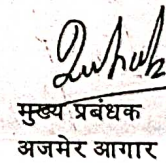 मुख्य प्रबंधक
अजमेर आगार